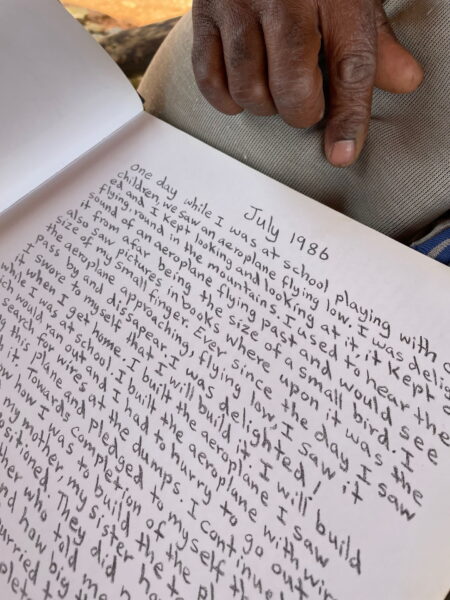 July 1986
One day while I was at school playing with
children, we saw an aeroplane flying low. I was delight
ed and I kept looking and looking at it, it kept
flying round in the mountains. I used to hear the
sound of an aeroplane flying past and would see
it from afar being the size of a small bird. I
also saw pictures in books where upon it was the
size of my small finger. Ever since the day I saw
the aeroplane approaching, flying low, I saw it
pass by and dissapear. I was delighted!
I swore to myself that I will build it. I will build
it when I get home. I built the aeroplane I saw
while I was at school. I built the aeroplane with wire
ch would ran out and I had to hurry to go out
search for wires at the dumps. I cont
this plane
it. Towards the completion of
how I was to build the
my mother, my sister
ositioned. They did
who told me
how big
urried